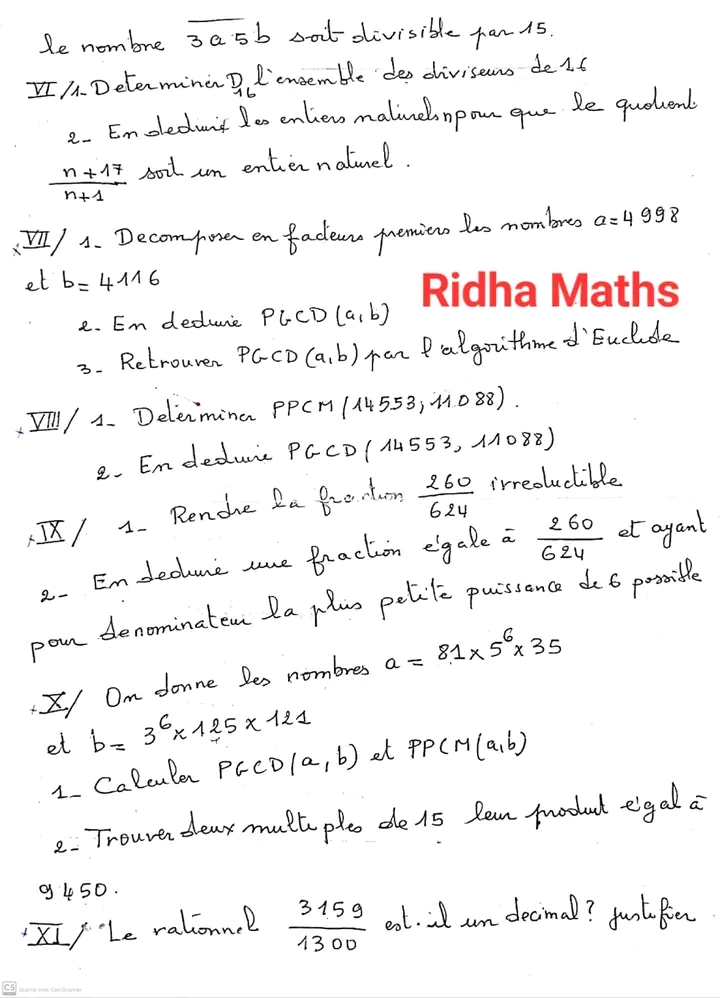 le nombre 3a5b soit divisible par 15.
VI/1- Determiner D16 l'ensemble des diviseurs de 16
2- En deduire les entiers naturels n pour que le quotient
n+17/n+1 soit un entier naturel.
VII/ 1- Decomposer en facteurs premiers les nombres a=4998
et b=4116
Ridha Maths
2- En deduire PGCD(a,b)
3- Retrouver PGCD(a,b) par l'algorithme d'Euclide
VIII/ 1- Déterminer PPCM(14553,11088).
2- En deduire PGCD(14553,11088)
IX/ 1- Rendre la fraction 260/624 irreductible
2- En deduire une fraction égale à 260/624 et ayant
pour denominateur la plus petite puissance de 6 possible
X/ On donne les nombres a = 81x5^6x35
et b= 3^6x125x121
1- Calculer PGCD(a,b) et PPCM(a,b)
2- Trouver deux multiples de 15 leur produit égal à
9450.
XI/ Le rationnel 3159/1300 est-il un decimal? Justifier
CS scanné avec CamScanner